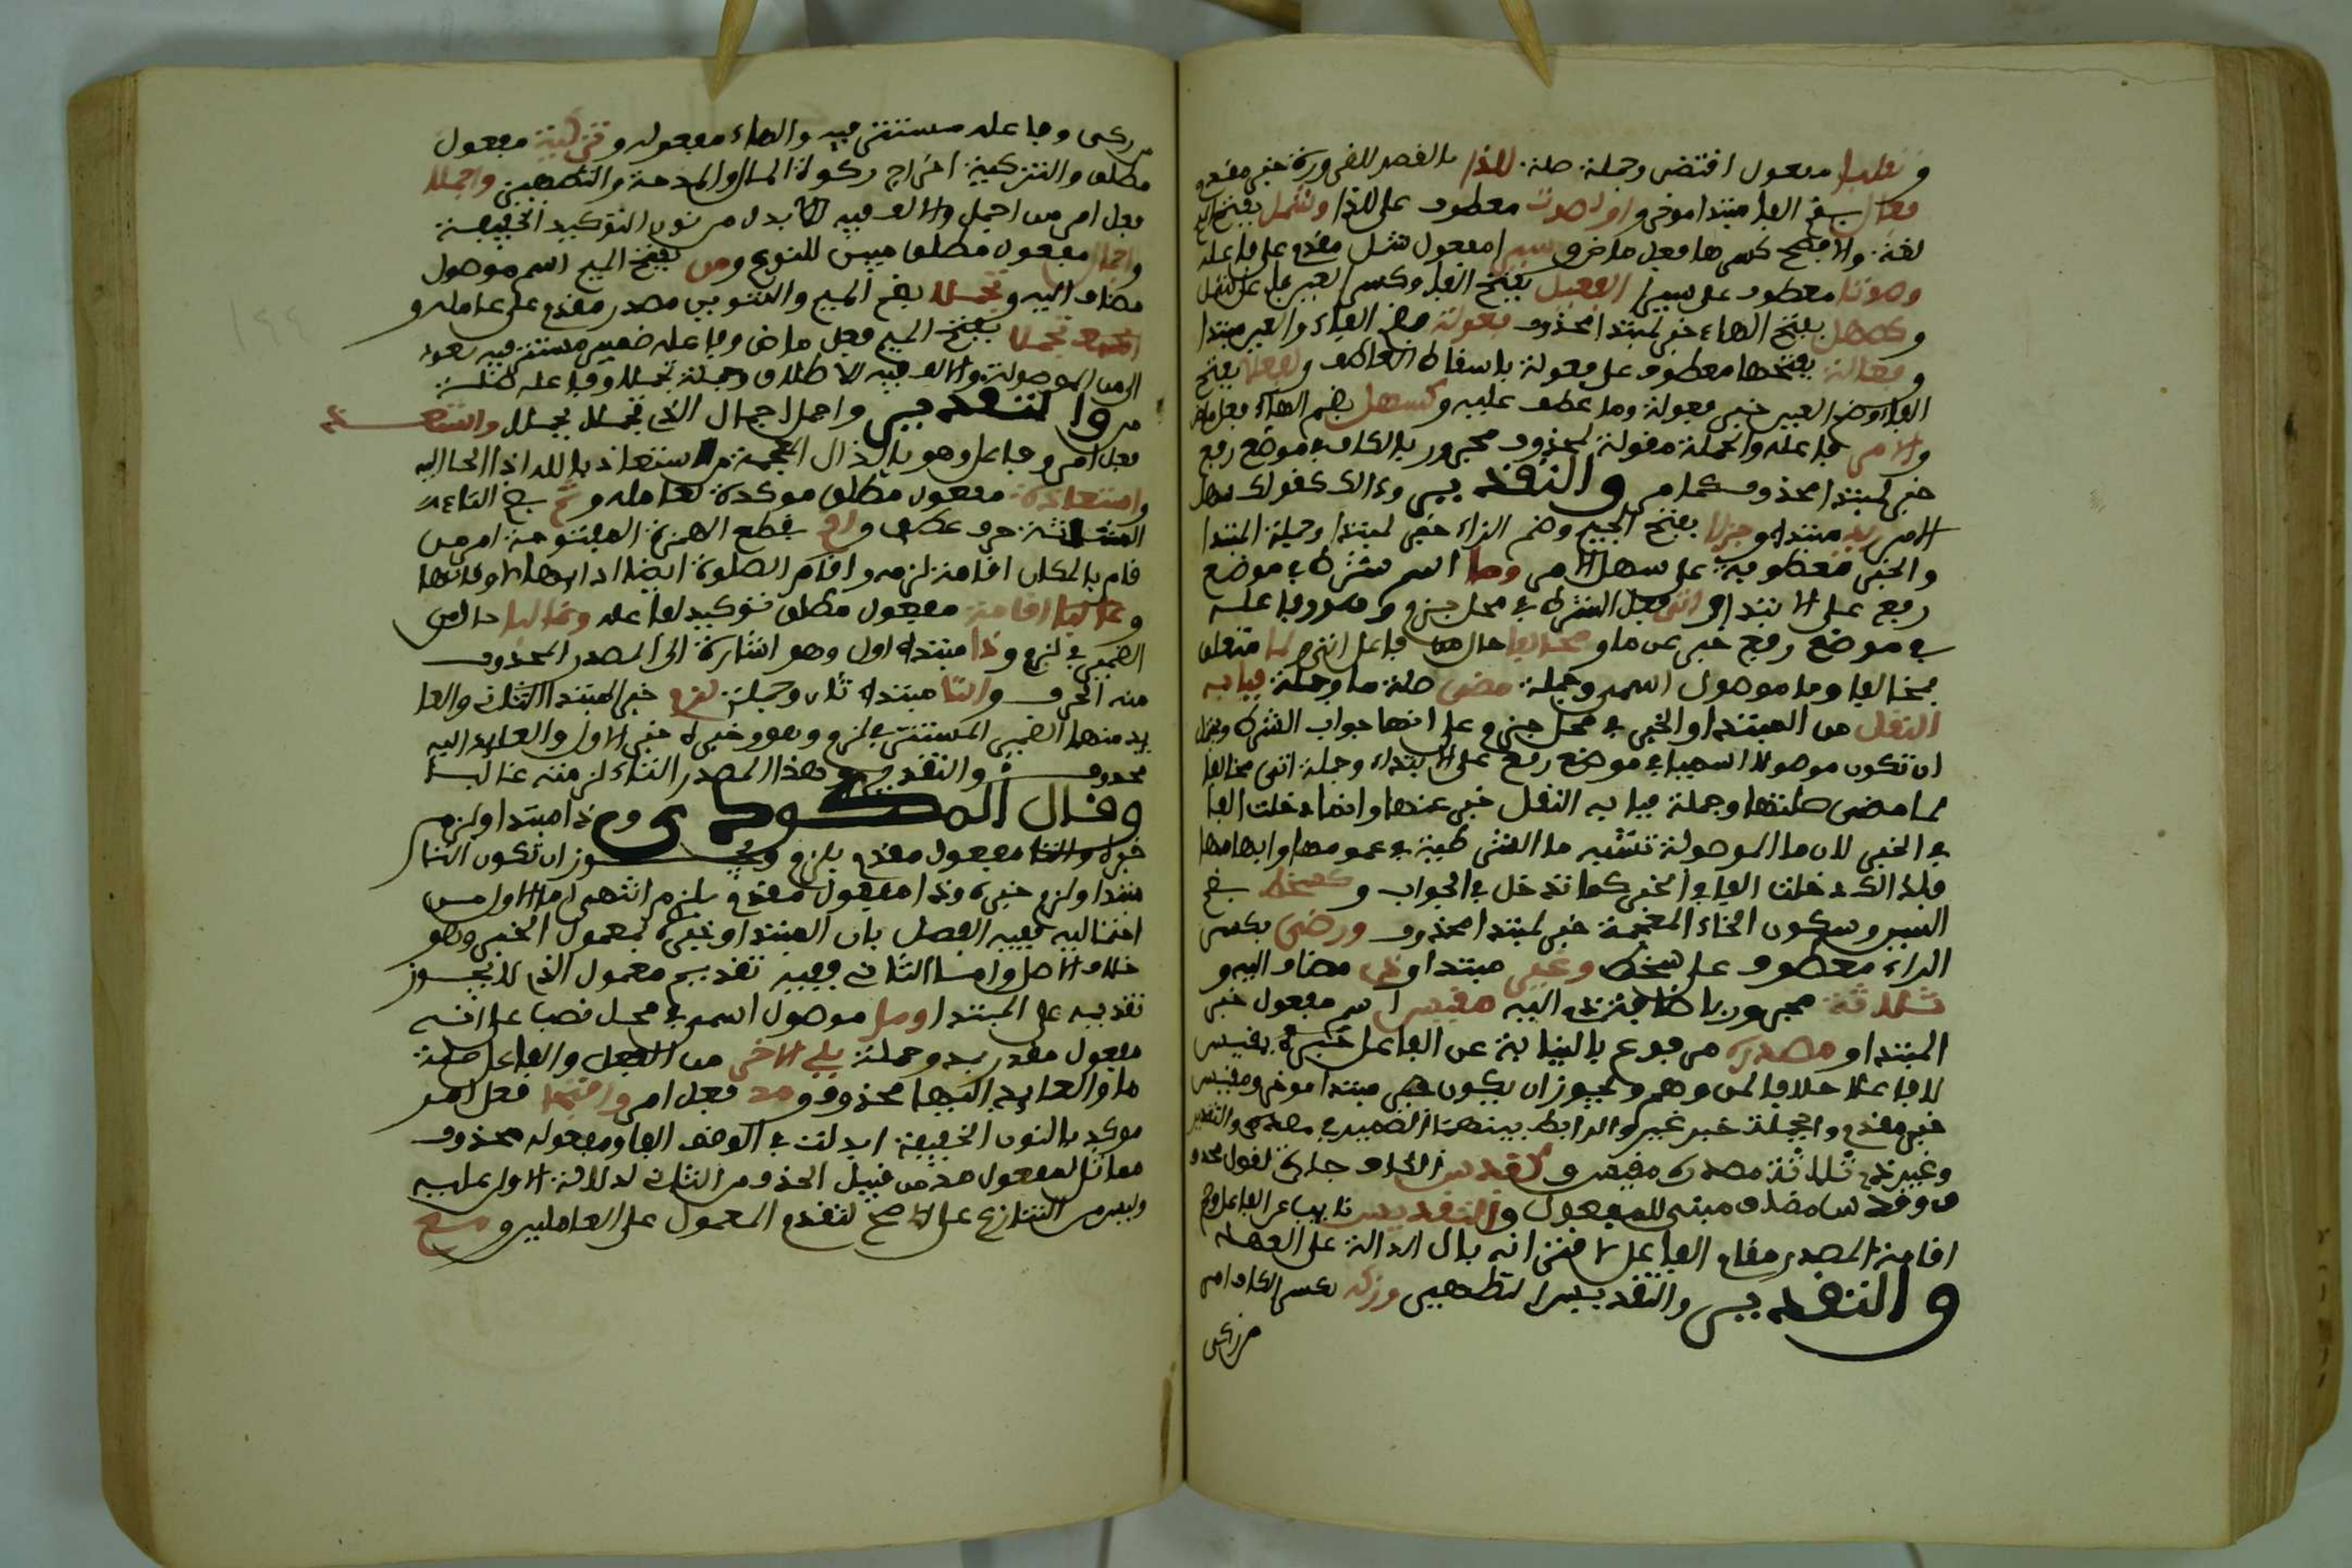 و تقلبا مفعول اقتضى وجملة صلة للذا بالقصر للضرورة خبر مقدم و
فعال بضم الفا مبتدا موخر و او لصوت معطوف على للدا و شمل بفتح الميم
لغة والافصح كسرها فعل ماض و سيرا مفعول شمل مقدم على فاعله
وصوتا معطوف على سيرا الفعيل بفتح الفا وكسر العين فاعل شمل
و كصهل بفتح الهاء خبر لمبتدا محذوف فعولة بضم الفاء والعين مبتدا
و فعالة بفتحها معطوف على فعولة باسقاط العاطف و لفعلا بفتح
الفاء وضم العين خبر فعولة وما عطف عليه و كسهل بضم الهاء فعل ماض
و الامر فاعله والجملة مقولة لمحذوف مجرور بالكاف في موضع رفع
خبر لمبتدا محذوف كما مر والتقدير وذالك كقولك سهل
الامر زيد مبتدا و جزلا بفتح الجيم وضم الزاء خبر لمبتدا وجملة المبتدا
والخبر معطوفة على سهل الامر وما اسم شرط في موضع
رفع على الابتدا و اتى فعل الشرط في محل جزم وهو وفاعله
في موضع رفع خبر عن ما و مخالفا حال من فاعل اتى و لما متعلق
بمخالفا وما موصول اسمي وجملة مضى صلة ما وجملة فبابه
النقل من المبتدا والخبر في محل جزم على انها جواب الشرط ويجوز
ان تكون موصولا اسميا في موضع رفع على الابتداء وجملة اتى مخالفا
لما مضى صلتها وجملة فبابه النقل خبر عنها وانما دخلت الفا
في الخبر لان ما الموصولة تشبه ما الشرطية في عمومها وابهامها
فلذالك دخلت الفا في الخبر كما تدخل في الجواب و كسخط بضم
السين وسكون الخاء المعجمة خبر لمبتدا محذوف ورضى بكسر
الراء معطوف على سخط وغير مبتدا و ذي مضاف اليه و
ثلاثة مجرور باضافة ذي اليه مقيس اسم مفعول خبر
المبتدا و مصدره مرفوع بالنيابة عن الفاعل خبره بمقيس
لا فاعلا خلافا لمن وهم ويجوز ان يكون مبتدا موخر ومقيس
خبر مقدم والجملة خبر غير والرابط بينهما الضمير في مصدره والتقدير
وغير ذي ثلاثة مصدره مقيس و كقدس الكاف جارة لقول محذو
ف وقدس ماض مبني للمفعول والتقديس نايب عن الفاعل وصح
اقامة المصدر مقام الفاعل لاقترانه بال الدالة على العهد
والتقدير والتقديس التطهير وزكه بكسر الكاف امر
من زكى
من زكى وفاعله مستتر فيه والهاء مفعوله و تزكية مفعول
مطلق والتزكية اخراج زكوة المال والمدحة والتطهير واجملا
فعل امر من اجمل والالف فيه بدل من نون التوكيد الخفيفة
و اجمال مفعول مطلق مبين للنوع و من بفتح الميم اسم موصول
مضاف اليه و تجملا بضم الميم والتنوين مصدر مقدم على عامله و
تجملا بفتح الميم فعل ماض وفاعله ضمير مستتر فيه يعود
الى من الموصولة والالف فيه للاطلاق وجملة تجملا وفاعله صلة
من والتقدير واجمل اجمال الذي تجمل تجملا واستعذ
فعل امر وفاعل وهو بالذال المعجمة من استعاذ بالله اذا لجا اليه
و استعاذة مفعول مطلق موكدة لعامله و ثم بضم الثاء
المثلثة حرف عطف و اقم بقطع الهمزة المفتوحة امر من
قام بالمكان اقامة لزمه واقام الصلوة ايضا اداها لاوقاتها
و اقامة مفعول مطلق توكيد لفاعله وغالبا حال من
الضمير في لزم و ذا مبتدا اول وهو اشارة الى المصدر المحذوف
منه الحرف و التا مبتدا ثان وجملة لزم خبر المبتدا الثاني والعا
يد منهما الضمير المستتر في لزم وهو وخبره خبر الاول والعايد اليه
محذوف والتقدير وهذا المصدر التاء لزمته غالبا
وقال المكودي وذا مبتدا ولزم
خبره والتا مفعول مقدم بلزم ويجوز ان تكون التا
مبتدا ولزم خبره وذا مفعول مقدم بلزم انتهى اما الاول من
احتماليه ففيه الفصل بين المبتدا وخبره بمعمول الخبر وهو
خلاف الاصل واما الثاني ففيه تقديم معمول الذي لا يجوز
تقديمه على المبتدا وما موصول اسمي في محل نصب على انه
مفعول مقدر بمد وجملة يلي الاخر من الفعل والفاعل صلة
ما والعايد اليها محذوف و مد فعل امر وافتحا فعل امر
موكد بالنون الخفيفة ابدلت في الوقف الفا ومفعوله محذوف
مماثل لمفعول مد من قبيل الحذف من الثاني لدلالة الاول عليه
وليس من التنازع على الاصح لتقدم المعمول على العاملين و مع